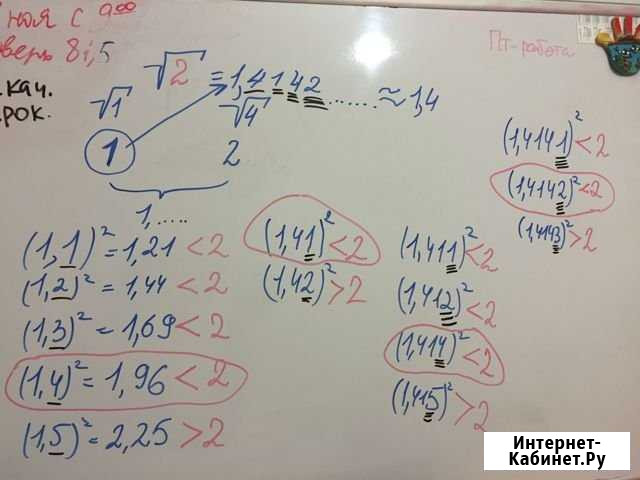 ная с 9⁰⁰
верь 8i,5
Пт-работа
кач.
рок.
√2 = 1,4142...... ≈ 1,4
√1 √4
1 2
1,.....
(1,1)² = 1,21 < 2
(1,2)² = 1,44 < 2
(1,3)² = 1,69 < 2
(1,4)² = 1,96 < 2
(1,5)² = 2,25 > 2
(1,41)² < 2
(1,42)² > 2
(1,411)² < 2
(1,412)² < 2
(1,414)² < 2
(1,415)² > 2
(1,4141)² < 2
(1,4142)² < 2
(1,4143)² > 2
Интернет-
Кабинет.Ру